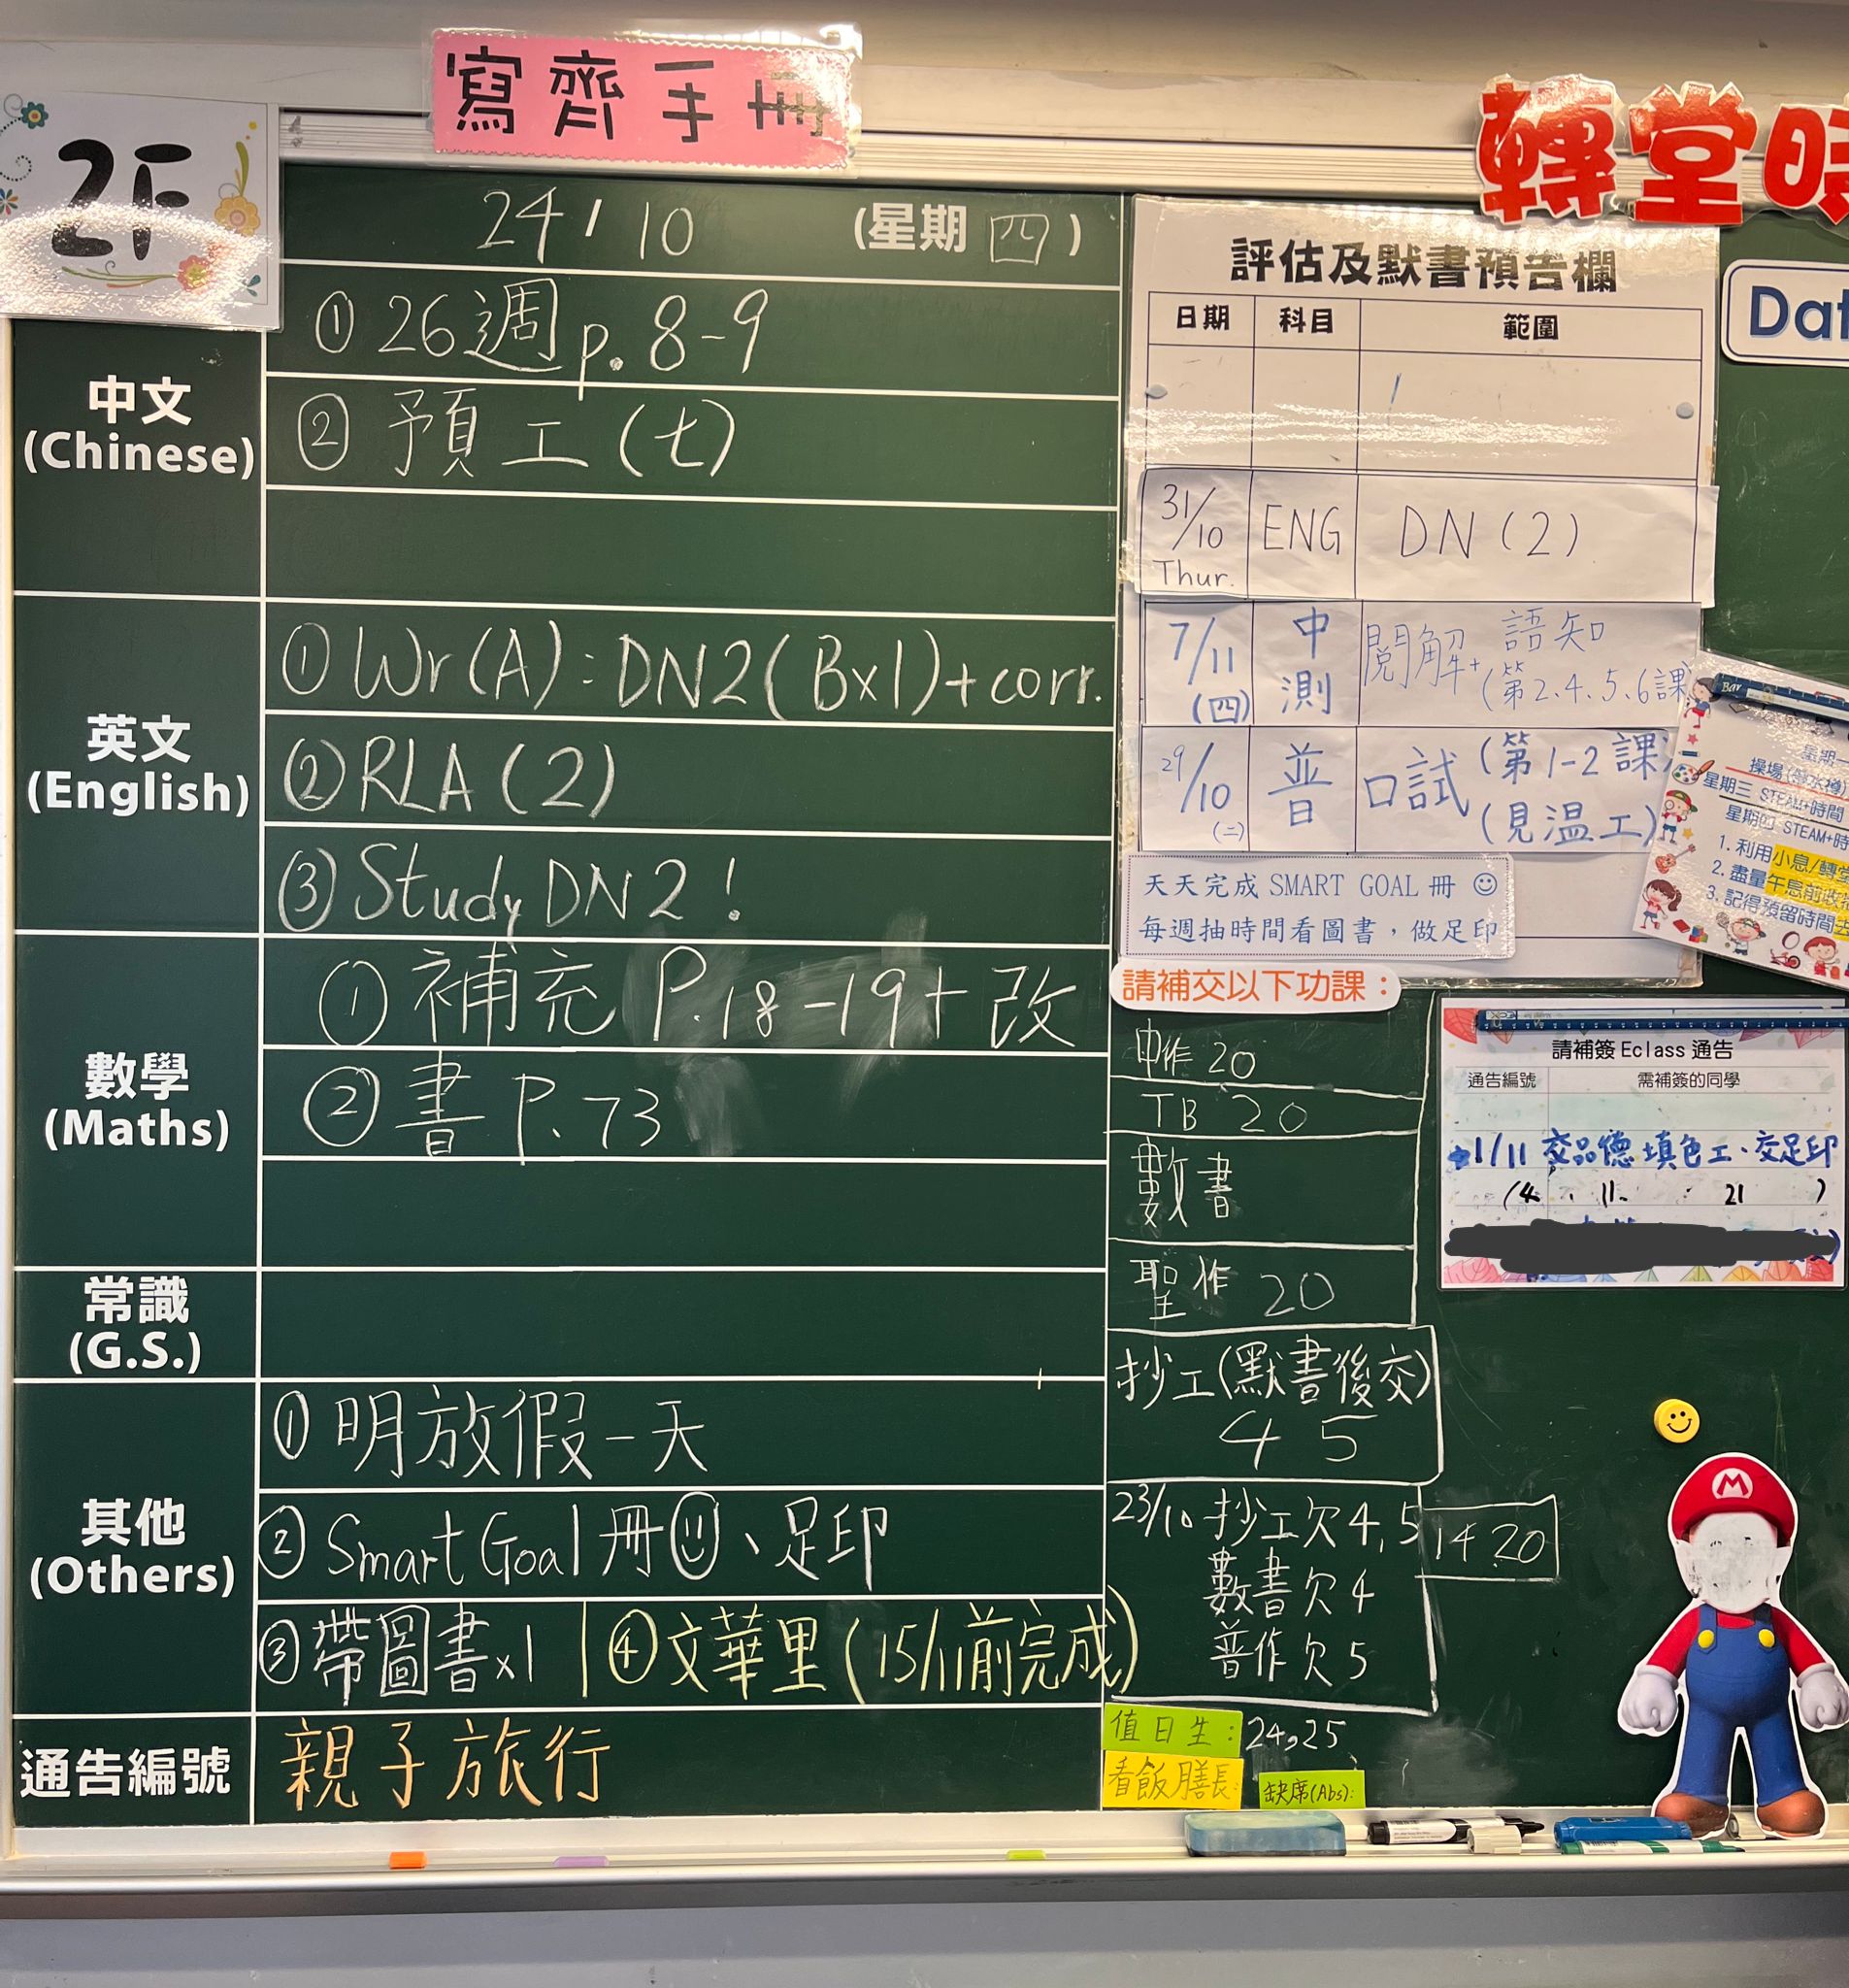 寫齊手冊
轉堂時
2F
24 / 10 (星期 四)
中文
(Chinese)
① 26週 p. 8-9
② 預工 (七)
英文
(English)
① Wr(A): DN2 (B×1) + corr.
② RLA (2)
③ Study DN2 !
數學
(Maths)
① 補充 P.18-19 + 改
② 書 P.73
常識
(G.S.)
其他
(Others)
① 明放假一天
② Smart Goal 冊、足印
③ 帶圖書×1 | ④ 文華里 (15/11前完成)
通告編號
親子旅行
評估及默書預告欄
日期 科目 範圍
31/10 Thur. ENG DN (2)
7/11 (四) 中測 閱解+語知 (第2.4.5.6課
29/10 (二) 普 口試 (第1-2課) (見溫工)
天天完成 SMART GOAL 冊 ☺
每週抽時間看圖書，做足印
請補交以下功課：
中作 20
TB 20
數書
聖作 20
抄工(默書後交)
4 5
23/10 抄工欠 4, 5
數書欠 4
普作欠 5
14 20
值日生： 24, 25
看飯膳長：
缺席(Abs):
Dat
Bar
星期一
操場
星期三 STEAM+時間
星期四 STEAM+時
1. 利用小息/轉堂
2. 盡量午息前收
3. 記得預留時間去
請補簽 Eclass 通告
通告編號 需補簽的同學
1/11 交品德填色工、交足印
(4. 11. 21 )
M